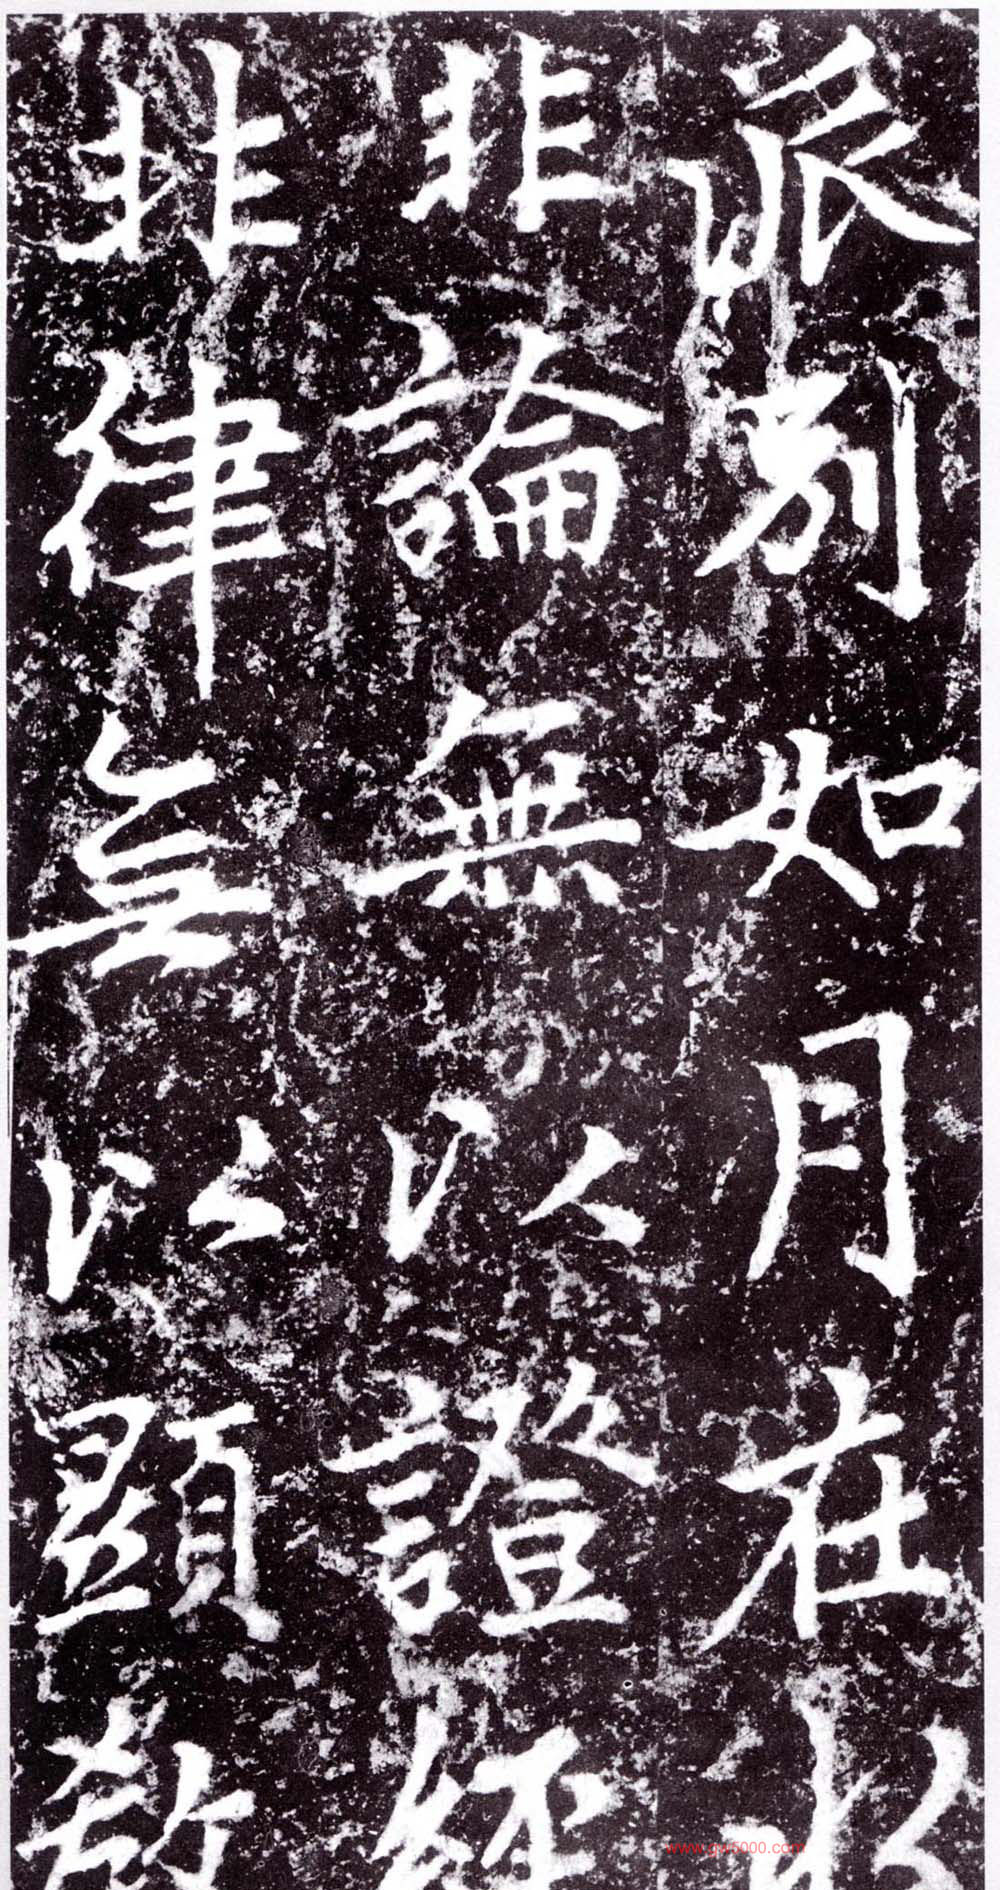 派別如月在水
非論無以證經
非律無以顯教
www.gw5000.com